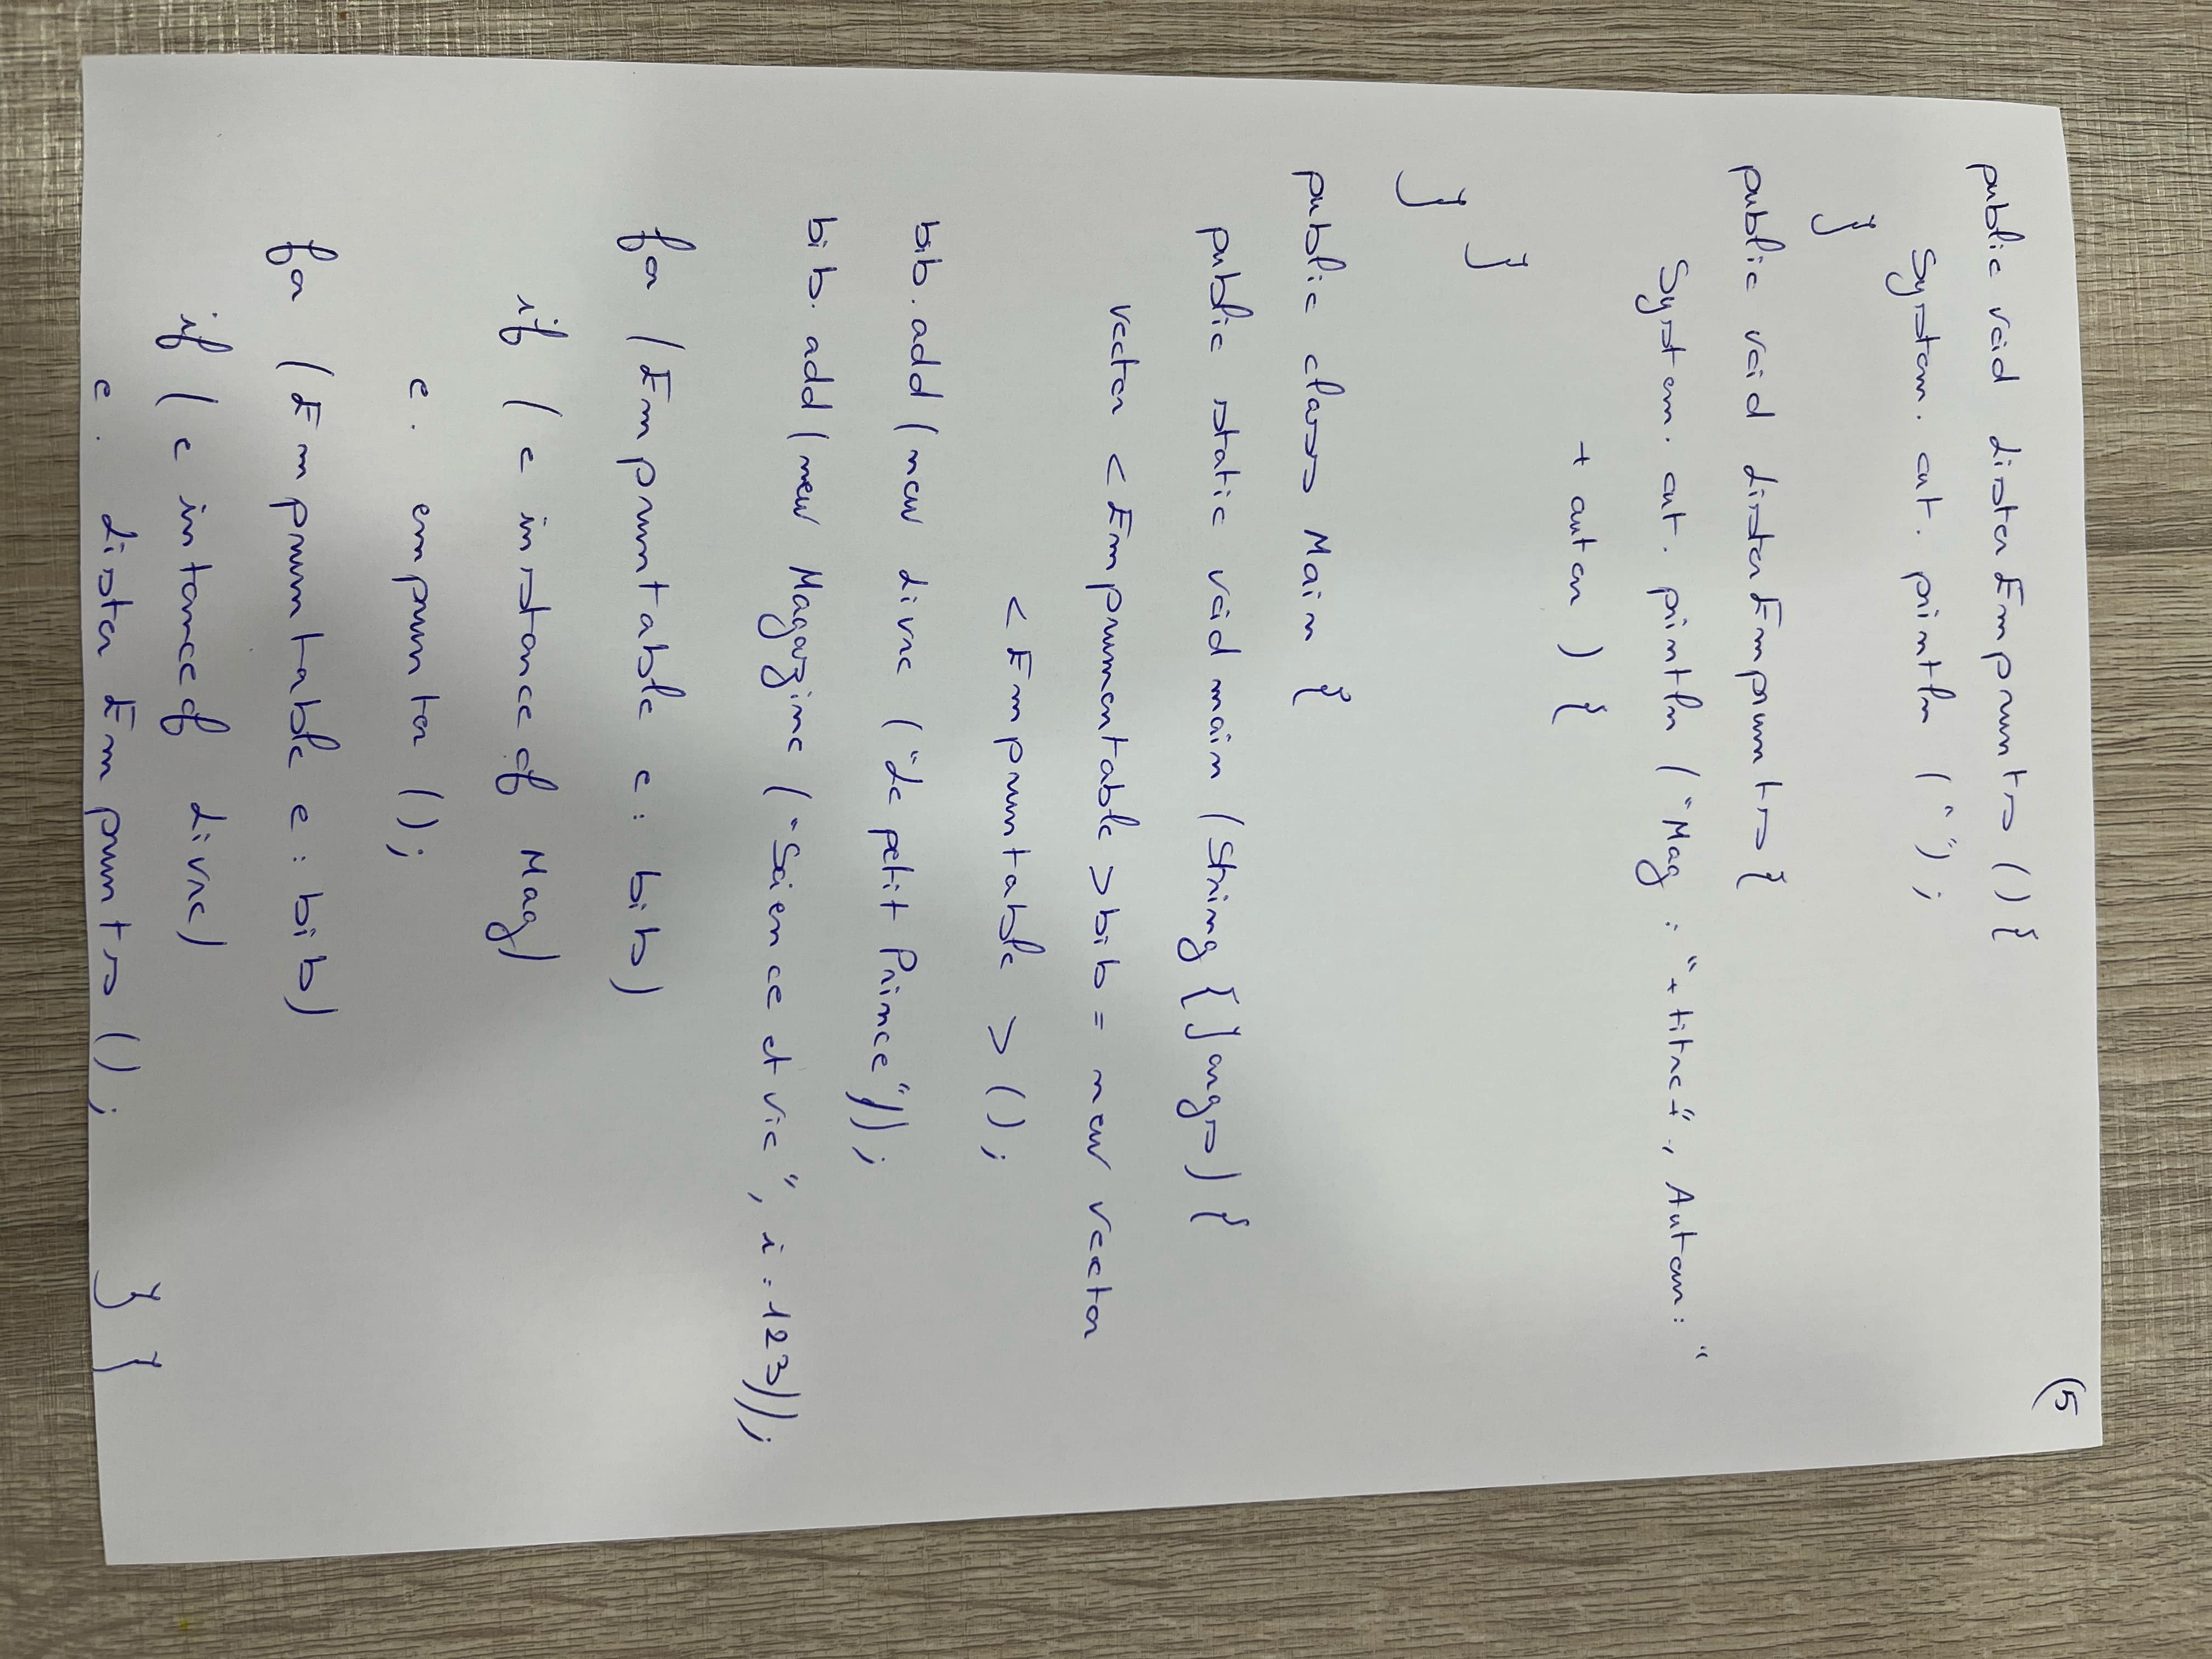 (5
public void listerEmprunts () {
System. out. println (" ");
}
public void listerEmprunts {
System. out. println ("Mag : "+titre+", Auteur: "
+ auteur ) {
}
}
public class Main {
public static void main (String [] args) {
vector <Emprumentable> bib = new vector
<Empruntable > ();
bib. add (new Livre ("Le petit Prince"));
bib. add (new Magazine ("Science et vie", i: 123));
for (Empruntable e: bib)
if (e instance of Mag)
e. emprunter ();
for (Empruntable e: bib)
if (e intance of Livre)
e. lister Emprunts (); }}